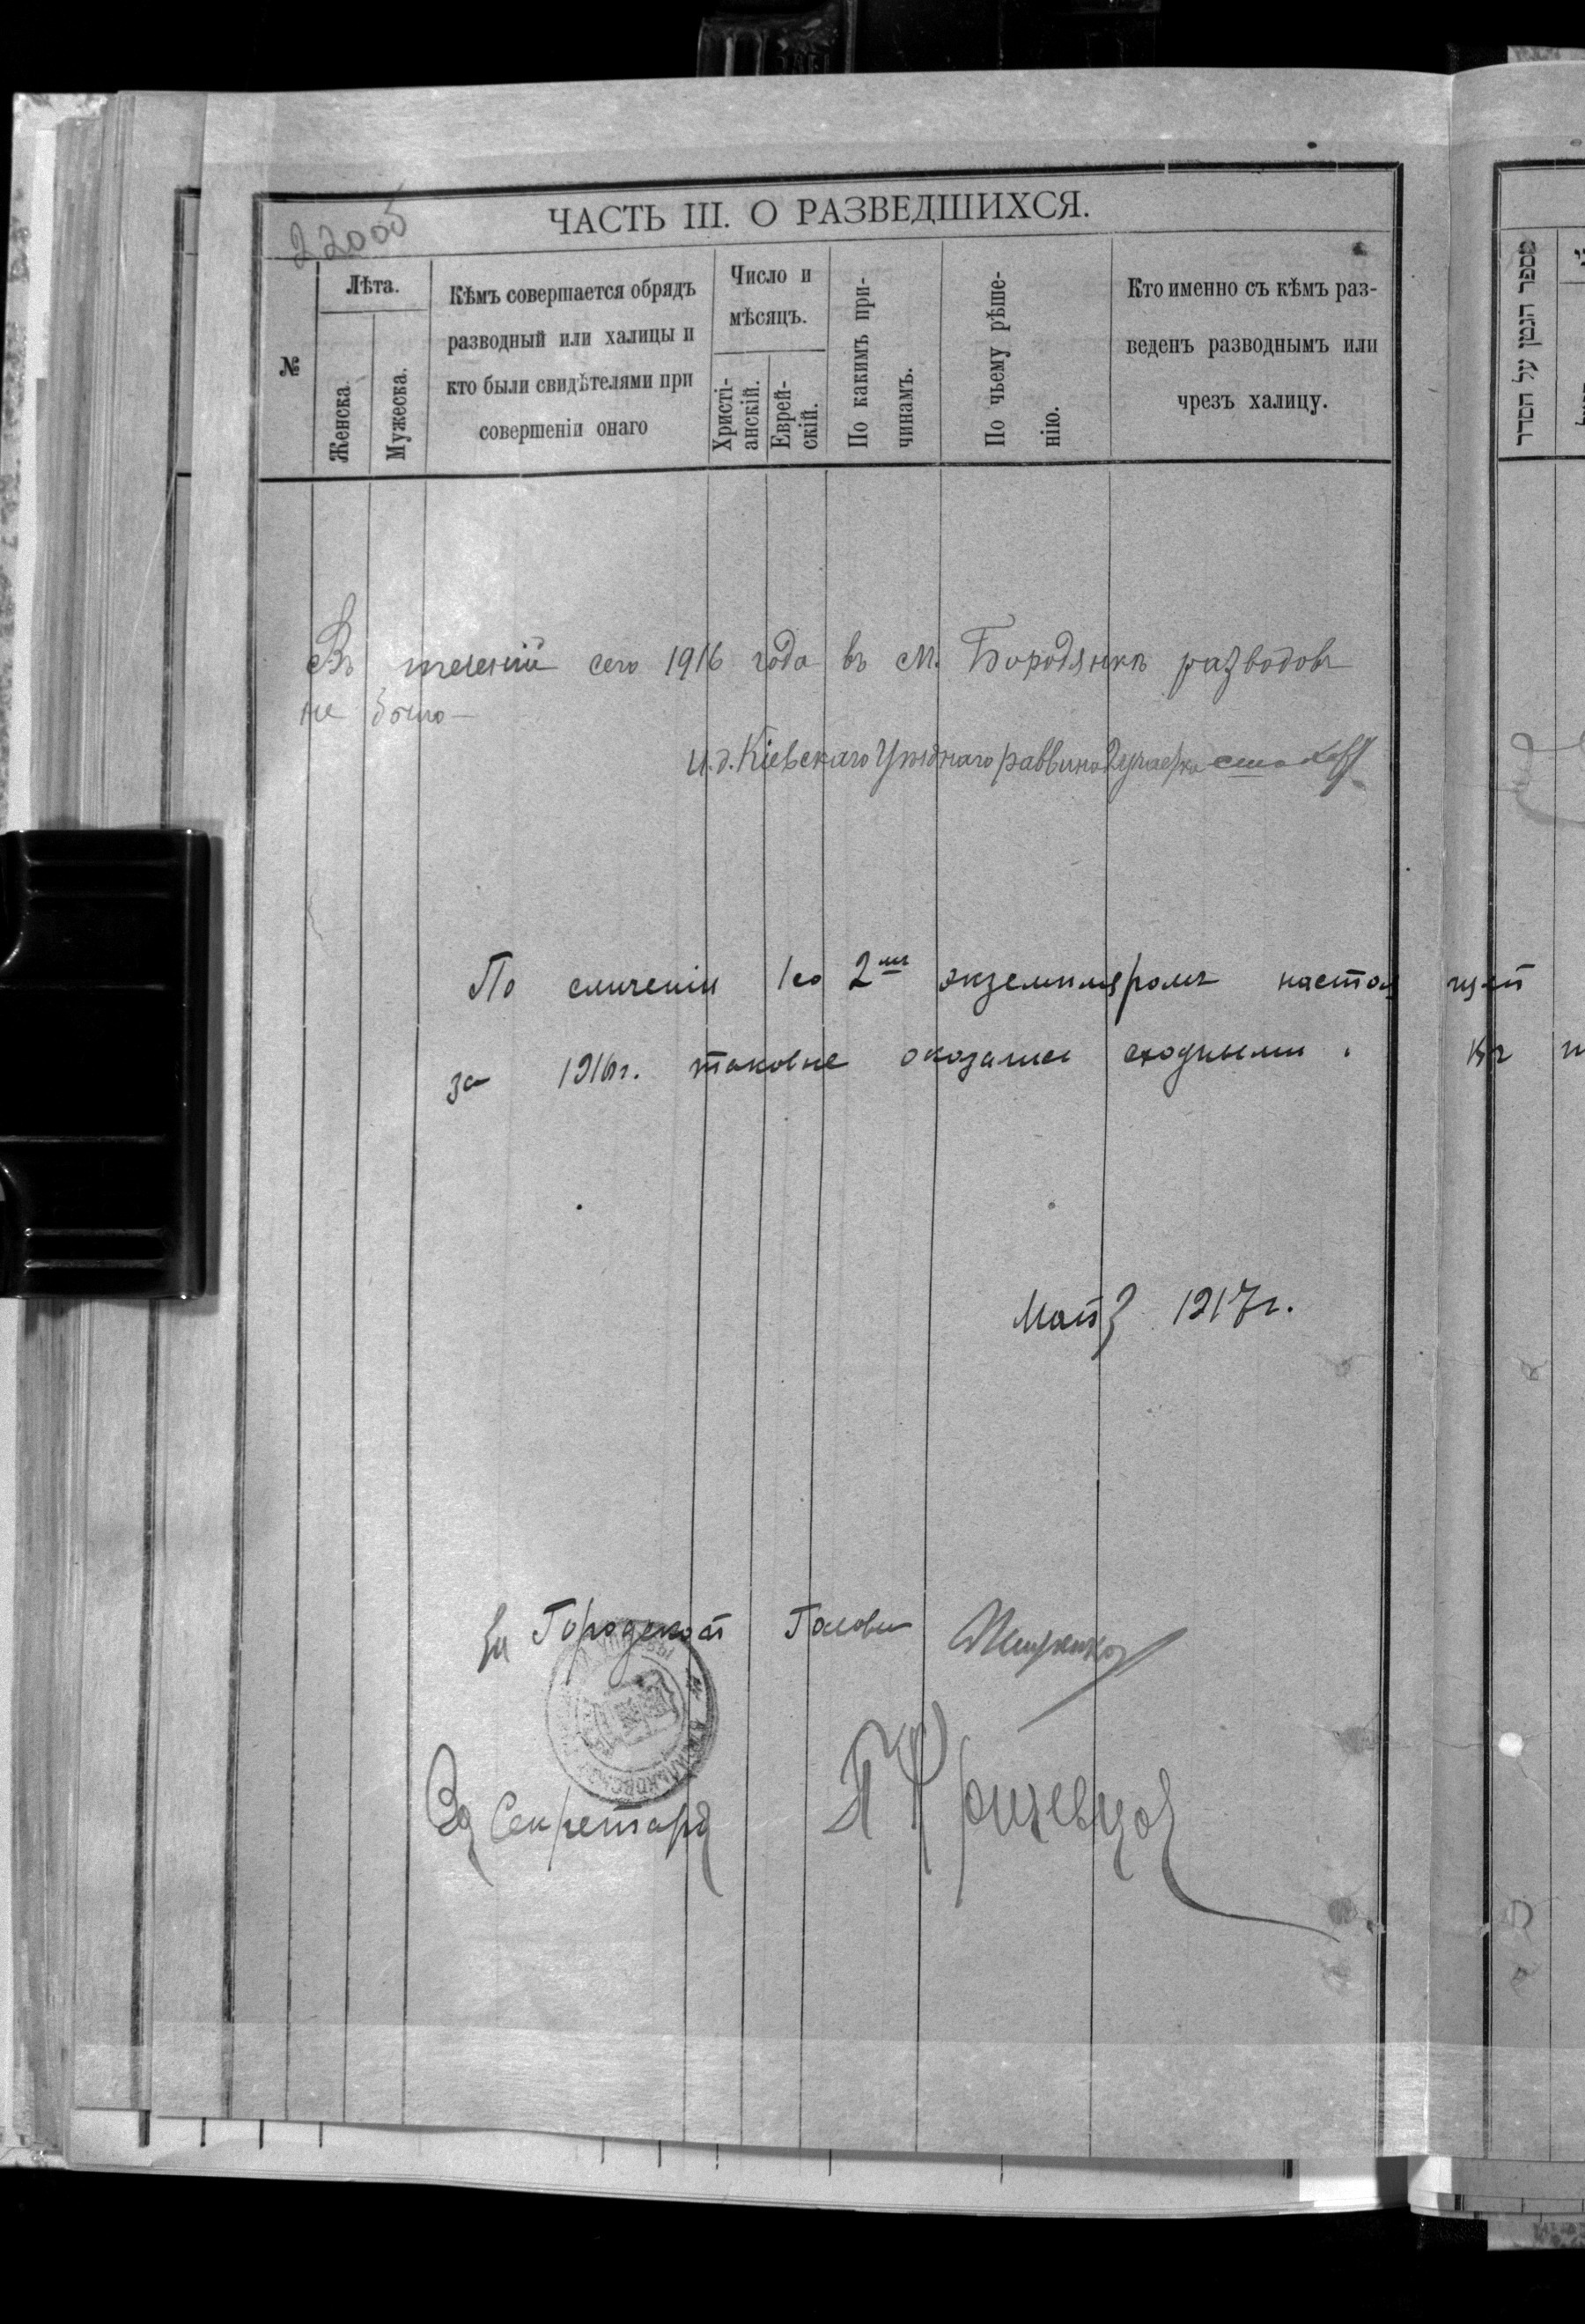 22005
ЧАСТЬ III. О РАЗВЕДШИХСЯ.
№
Лѣта.
Женска.
Мужеска.
Кѣмъ совершается обрядъ
разводный или халицы и
кто были свидѣтелями при
совершеніи онаго
Число и
мѣсяцъ.
Христі-
анскій.
Еврей-
скій.
По какимъ при-
чинамъ.
По чьему рѣше-
нію.
Кто именно съ кѣмъ раз-
веденъ разводнымъ или
чрезъ халицу.
מספר הגטין על הסדר
Въ теченіи сего 1916 года въ м. Бородянкѣ разводовъ
не было
И.д. Кіевскаго Уѣзднаго раввина
По сличеніи со 2мъ экземпляромъ настоящей
за 1916г. таковые оказались сходными.
Мая 3 1917г.
За Городской Головы
За Секретаря